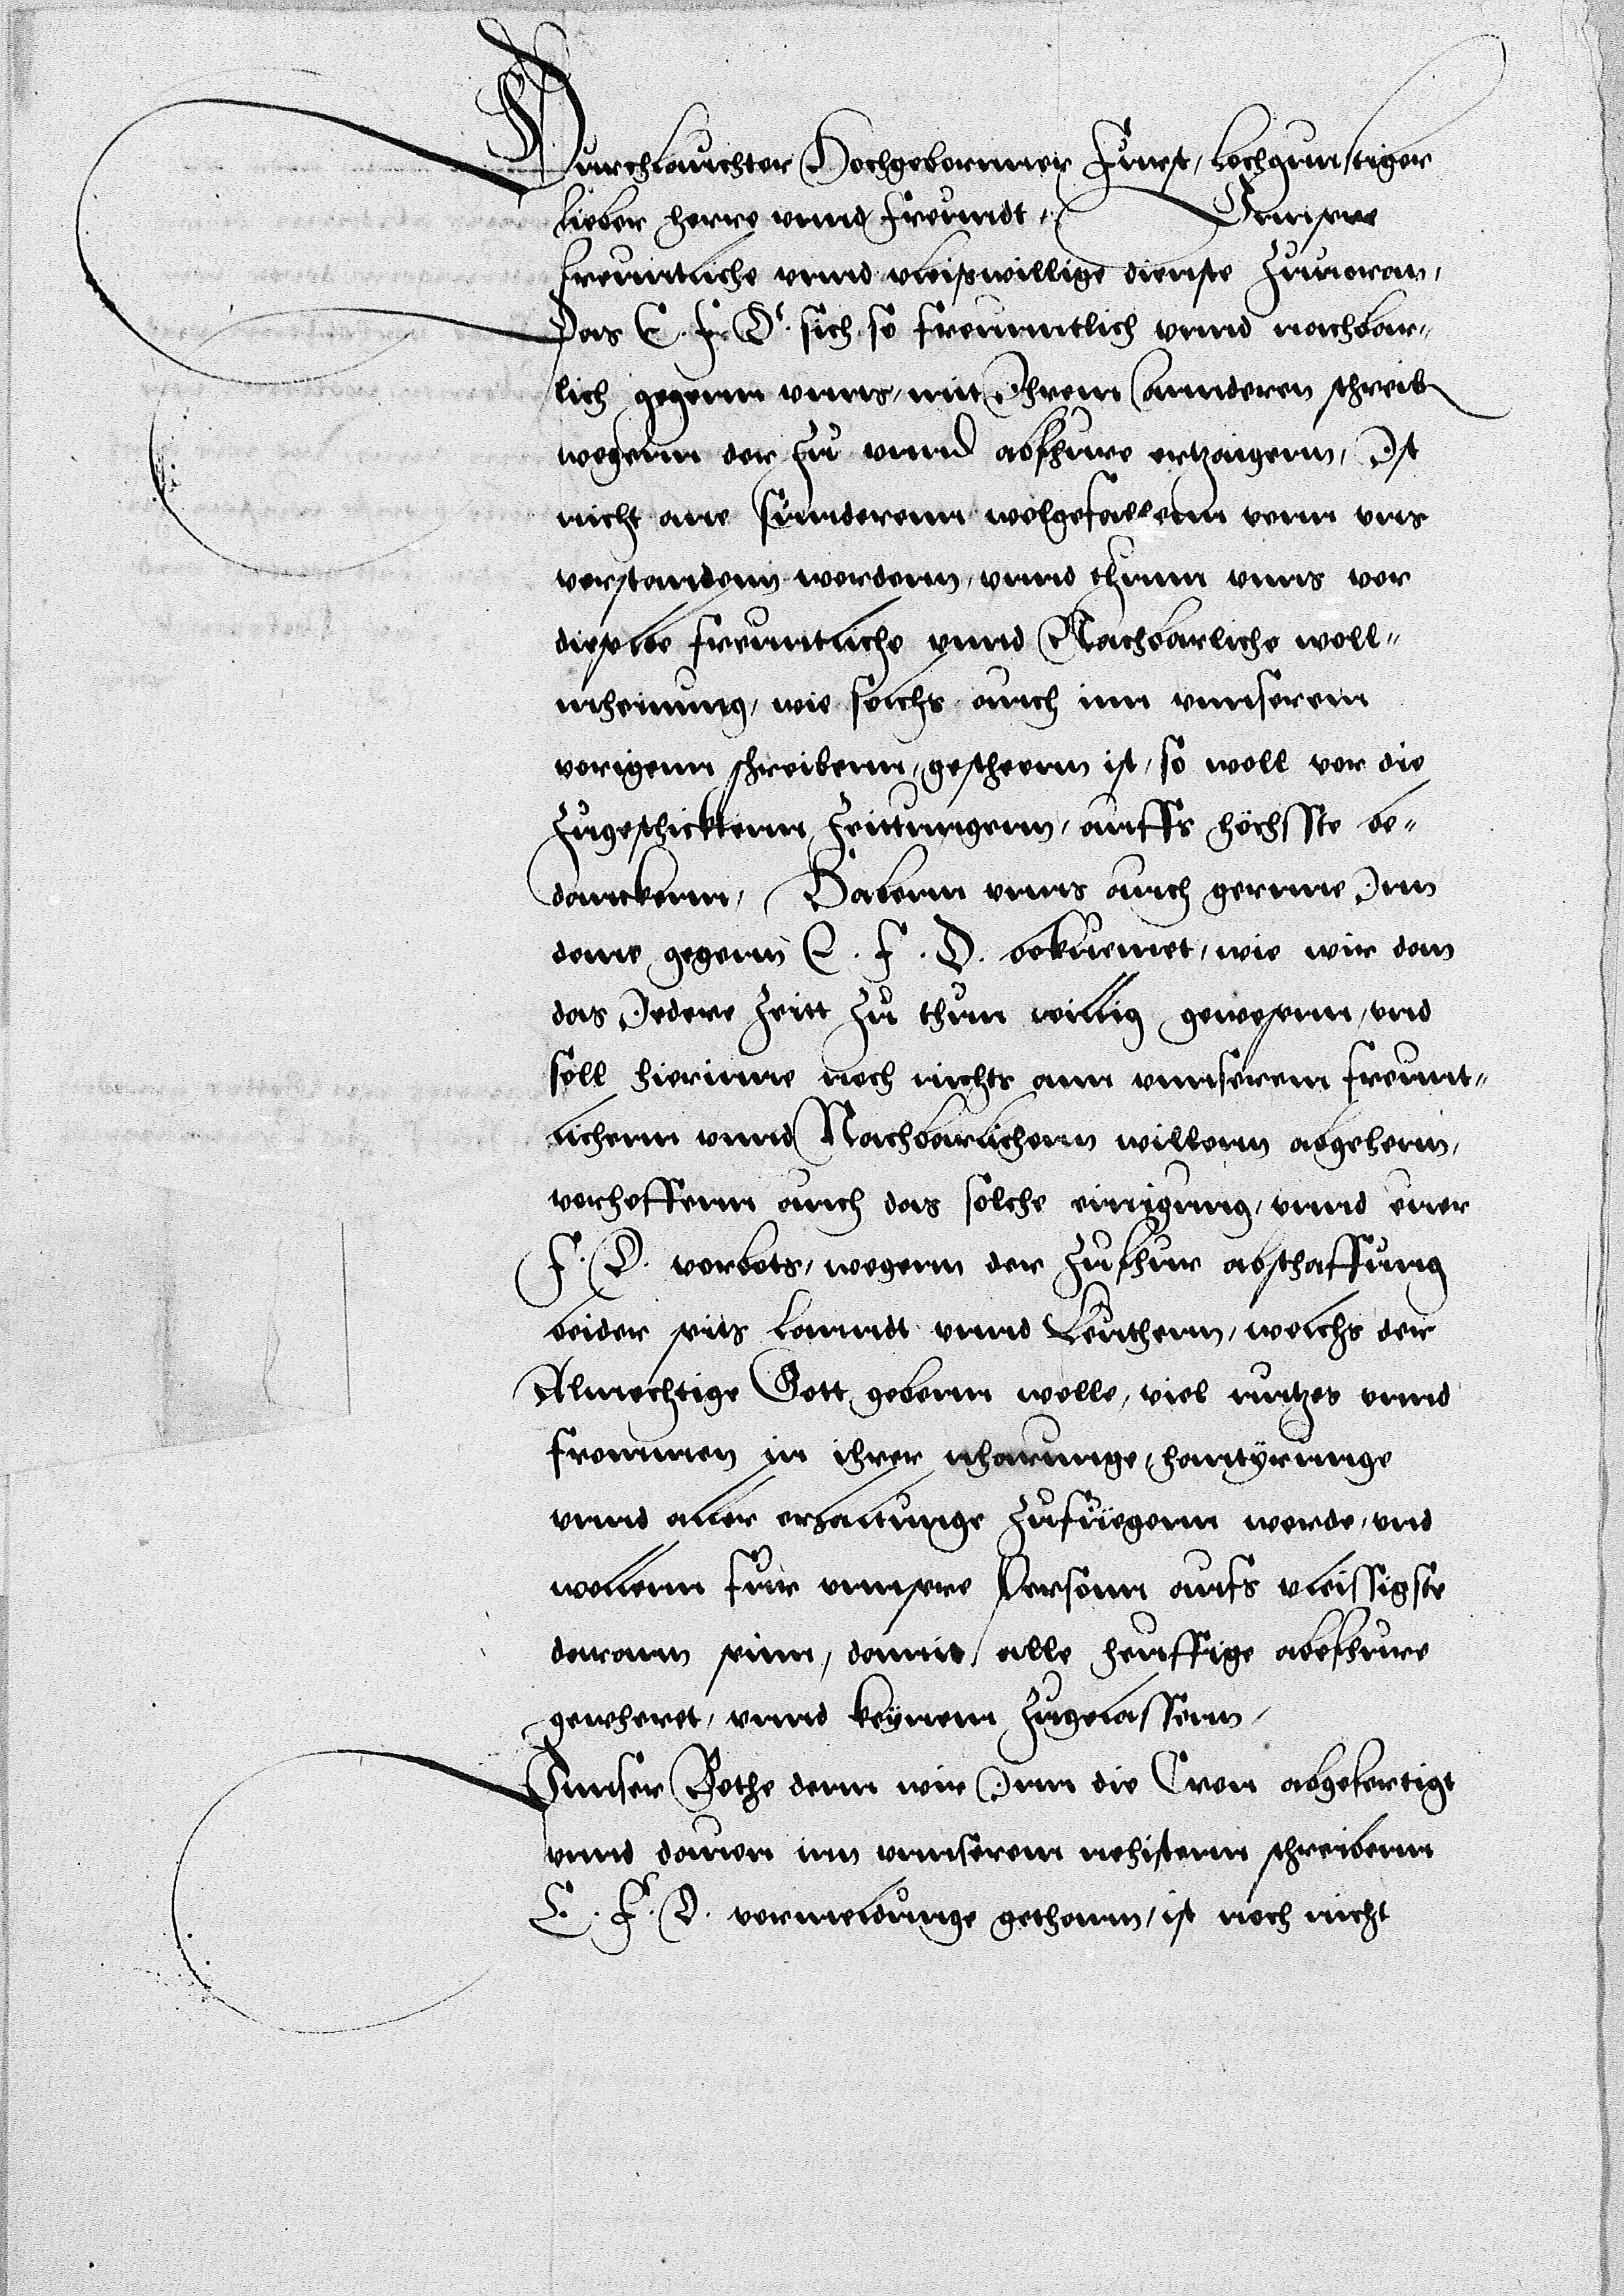 Durchlauchter Hochgebornner Furst, hochgunstiger
lieber herre vnnd freundt, Vnnsere
freuntliche vnnd vleiswillige dienste zuuoran,
Das E. F. D. sich so freunntlich vnnd nachbar„
lich gegenn vnns, mit Ihrem anderen schreib
wegenn der zu vnnd abfhure ertzaigenn, Ist
nicht ane sunderenn wolgefallenn vonn vns
verstandenn wordenn, vnnd thunn vnns vor
dieselbe freuntliche vnnd Nachbarliche woll„
mheinung, wie solchs auch inn vnnserem
vorigenn schreibenn, gescheenn ist, so woll vor die
zugeschicktenn Zeittungenn, auffs höchsste be„
danckenn, Habenn vnns auch gernne Inn
deme gegenn E. F. D. bekuemet, wie wir dan
das Jedere Zeitt zu thun willig gewesenn, vnd
soll hierinne noch nichts ann vnnserem freunt„
lichenn vnnd Nachbarlichenn willenn abgehenn,
verhoffenn auch das solche einigung, vnnd euer
F. D. verbots, wegenn der Zufhur abschaffung
beider seits Lanndt vnnd Leuthenn, welchs der
Almechtige Gott gebenn wolle, viel nutzes vnnd
frommen in ihrer nharunge, hantÿrunge
vnnd aller erhaltunge zufuegenn werde, vnd
wollenn fur vnnsere Personn aufs vleissigste
darann seinn, damit alle heuffige abefhure
gewheret, vnnd keÿnem zugelassenn,
Vnnser Bothe denn wir Inn die Cron abgefertigt
vnnd dauon inn vnnserem nehistenn schreibenn
E. F. D. vermeldunge gethann, ist noch nicht